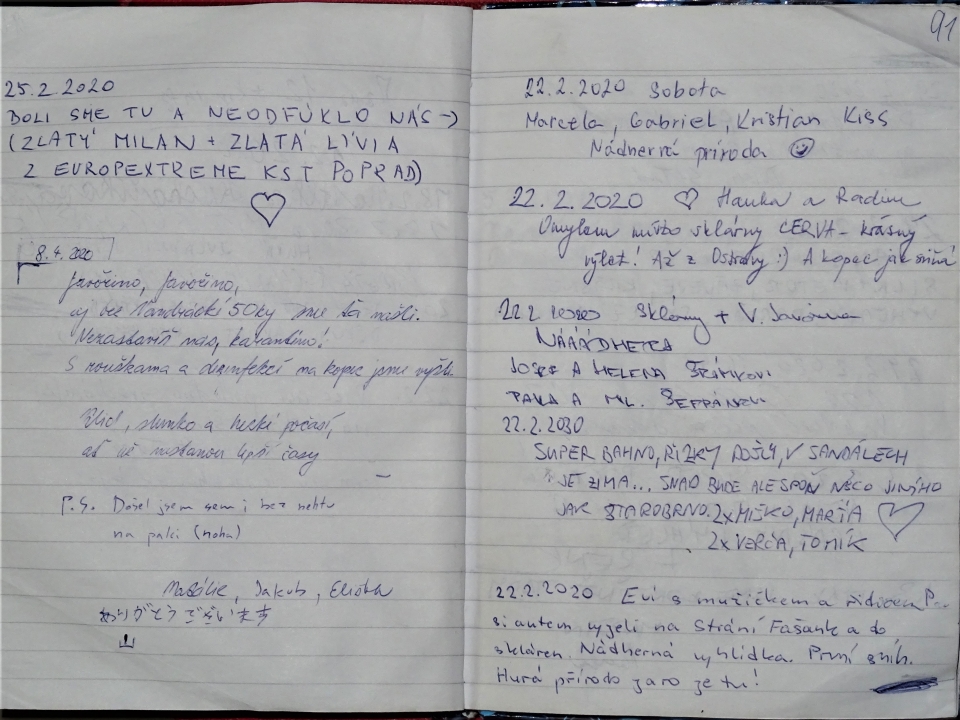 25.2.2020
BOLI SME TU A NEODFÚKLO NÁS →
(ZLATÝ MILAN + ZLATÁ LÍVIA
Z EUROPEXTREME KST POPRAD)
8.4.2020
Javořino, Javořino,
aj bez 50ky sme ťa našli.
Nezastaví nás, karanténo!
S rouškama a disinfekcí na kopec jsme vyšli.
Klid, slunko a hezké počasí,
ať už nastanou lepší časy
P.S. Došel jsem sem i bez nehtu
na palci (noha)
Natálie, Jakub, Eliška
ありがとうございます
山
91
22.2.2020 Sobota
Marcela, Gabriel, Kristian Kiss
Nádherná príroda
22.2.2020 Hanka a Radim
Omylem místo sklárny - krásný
výlet! Až z Ostravy :) A kopec jak sviňa
22.2.2020 Sklárny + V. Javořina
NÁÁÁDHERA
JOSEF A HELENA
A ML.
22.2.2020
SUPER BAHNO, ŘÍZKY DOŠLY, V SANDÁLECH
JE ZIMA... SNAD BUDE ALESPOŇ NĚCO JINÝHO
JAK STAROBRNO. 2x MIŠKO, MARŤA
2x VERČA, TOMÍK
22.2.2020 Evi s mužíčkem a řidičem
si autem vyjeli na Strání Fašank a do
skláren. Nádherná vyhlídka. První sníh.
Hurá přírodo jaro je tu!